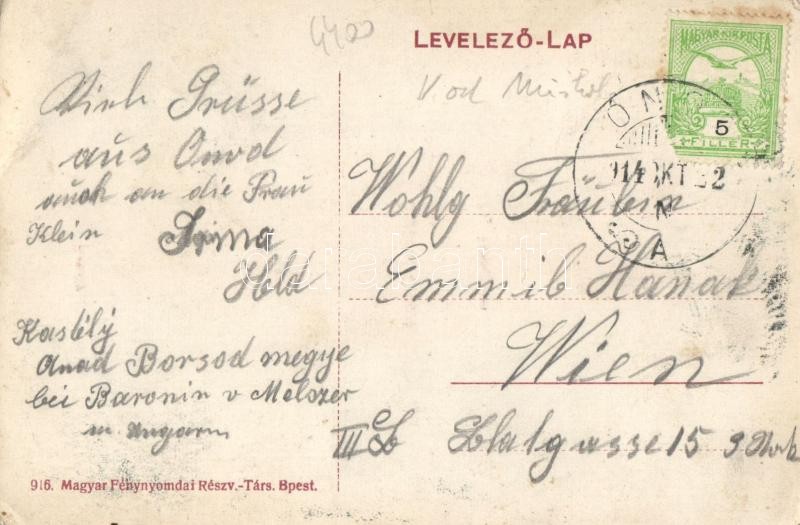 4400
LEVELEZŐ-LAP
MAGYAR KIR. POSTA
5
FILLER
914 OKT 22
A
Viele Grüsse
aus Onod
auch an die Frau
Klein Irma
Hld
Kastély
Onod Borsod megye
bei Baronin v Melszer
in Ungarn
V. od
Wohlg Fräulein
Emmib Hanak
Wien
III
gasse 15
916. Magyar Fénynyomdai Részv.-Társ. Bpest.
darabanth